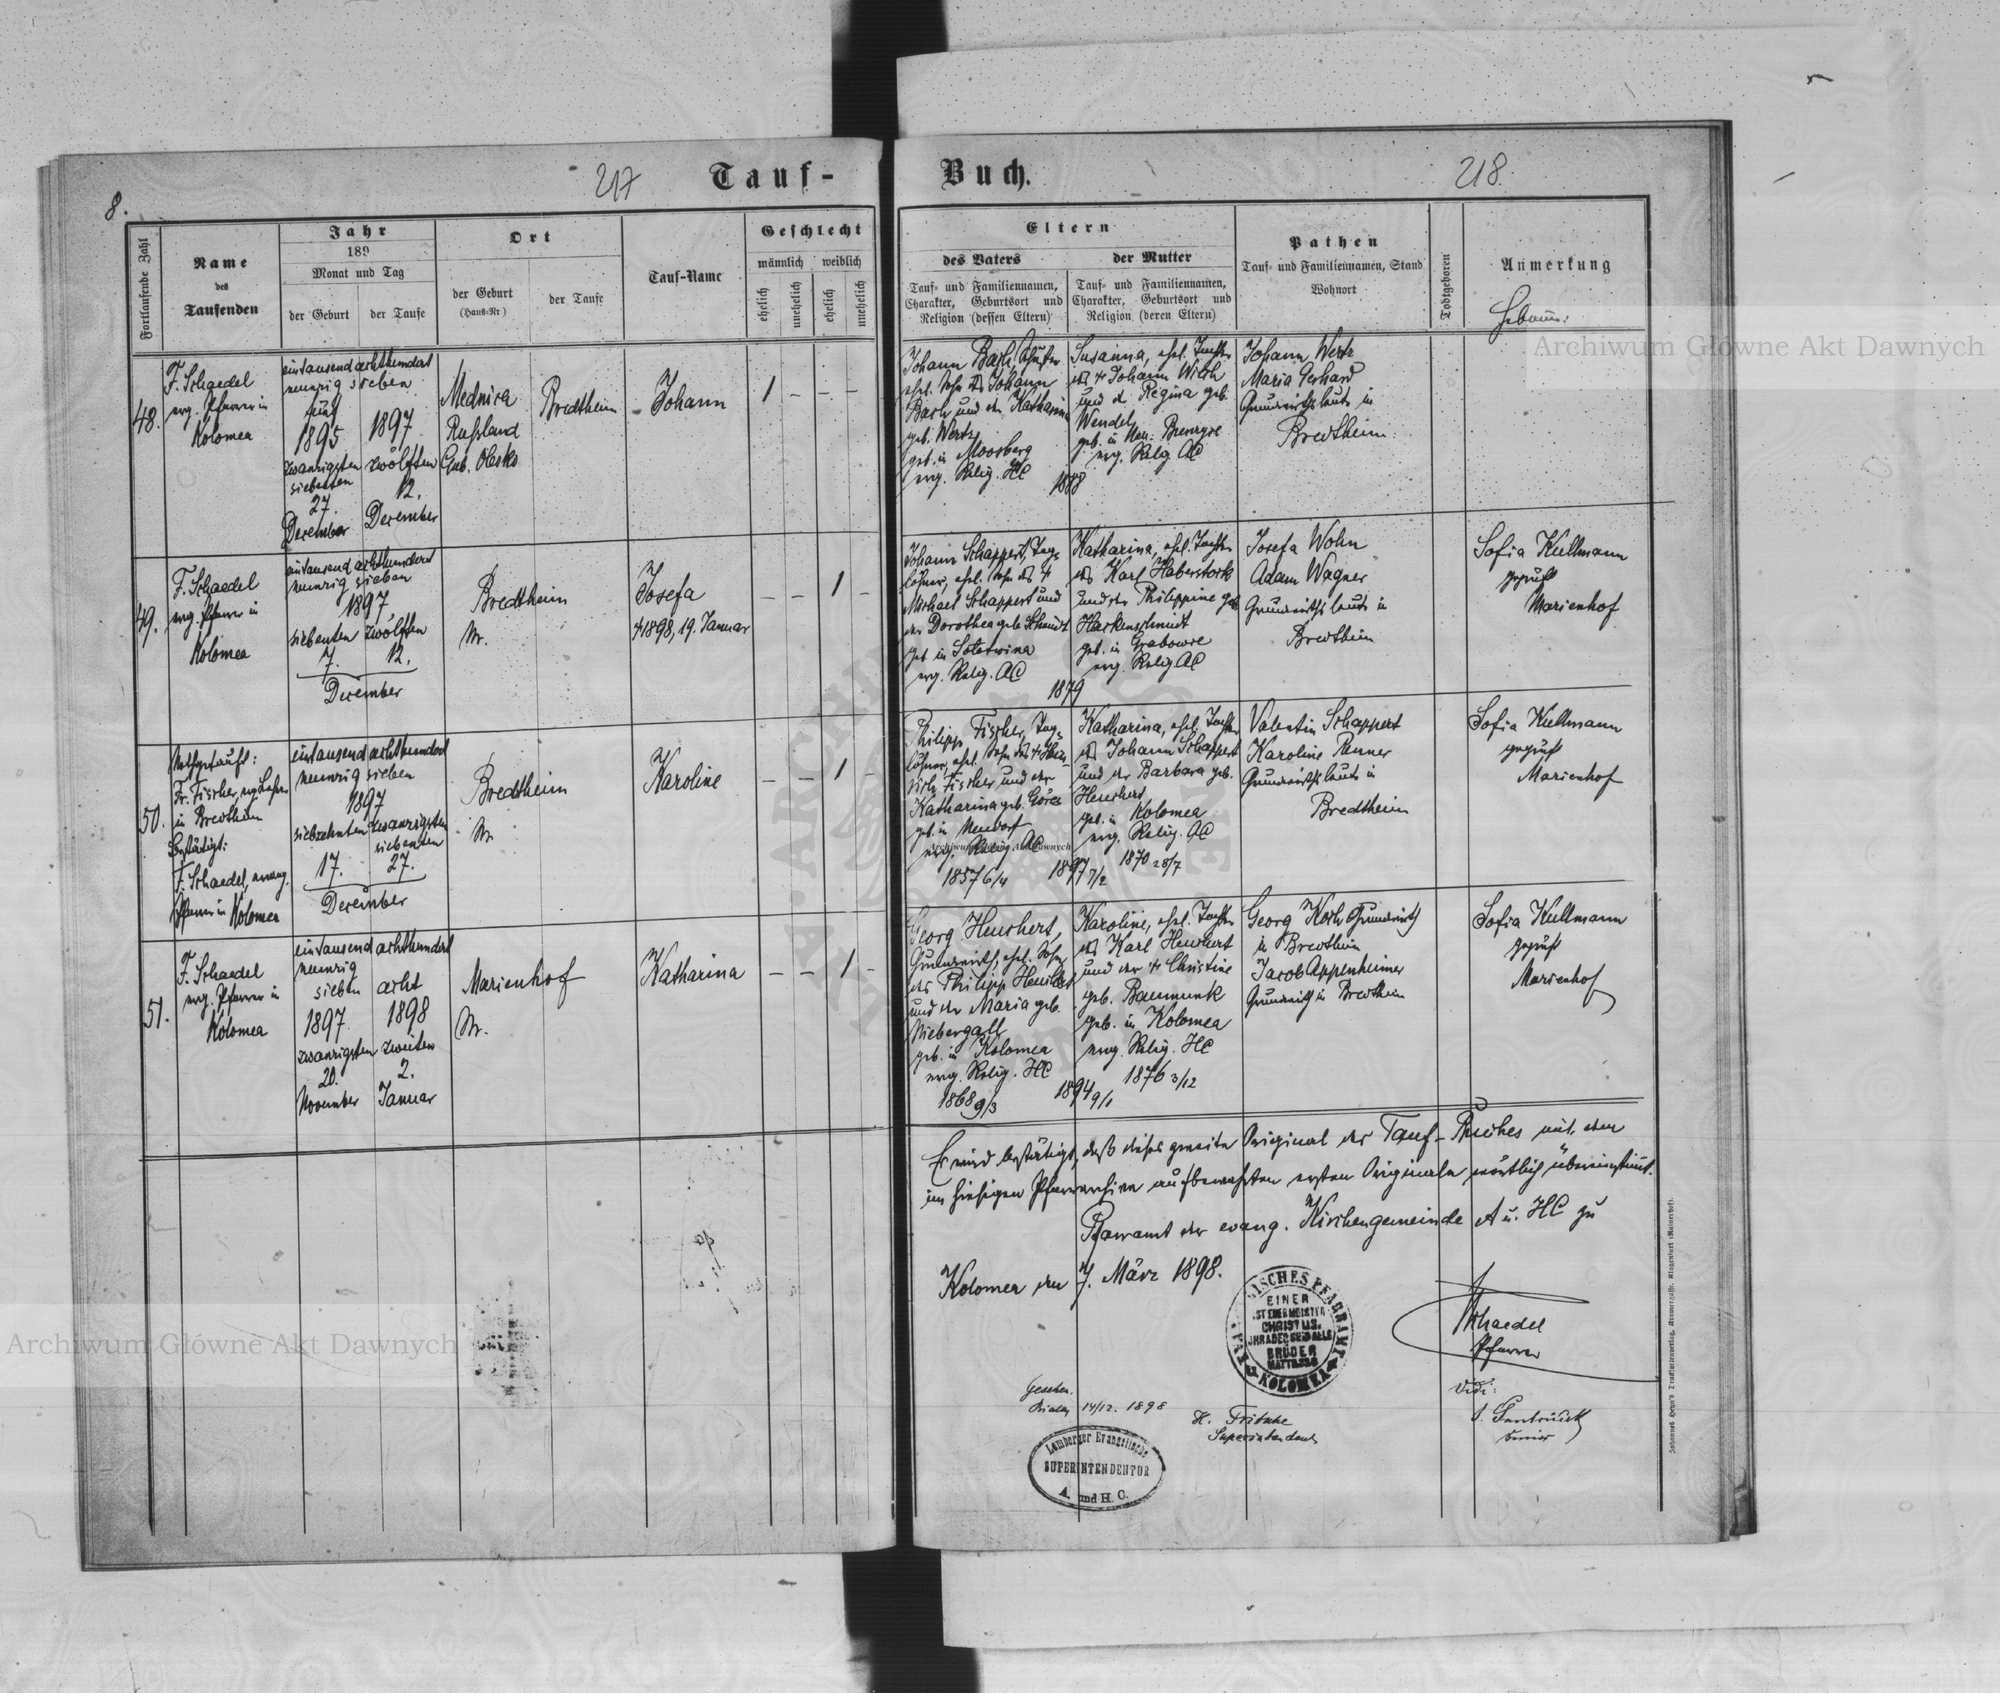 8.
217
Tauf-
Buch.
218.
Fortlaufende Zahl
Name
des
Taufenden
Jahr
189
Monat und Tag
der Geburt
der Taufe
Ort
der Geburt
(Haus-Nr)
der Taufe
Tauf-Name
Geschlecht
männlich
weiblich
ehelich
unehelich
ehelich
unehelich
Eltern
des Vaters
Tauf- und Familiennamen,
Charakter, Geburtsort und
Religion (dessen Eltern)
der Mutter
Tauf- und Familiennamen,
Charakter, Geburtsort und
Religion (deren Eltern)
Pathen
Tauf- und Familiennamen, Stand
Wohnort
Todtgeboren
Anmerkung
48.
F. Schaedel
evg. Pfarrer in
Kolomea
eintausend achthundert
neunzig sieben
fünf
1895
1897
zwanzigsten
zwölften
siebenten
27.
12.
December
December
Mednica
Rußland
Gub.
Bredtheim
Johann
1 - - -
Johann Bach,
ehel. Sohn des Johann
Bach und der Katharina
geb. Wertz
geb. in Moosberg
evg. Relig. HC
1888
Susanna, ehel. Tochter
des † Johann
und d. Regina geb.
Wendel
geb. in Neu-
evg. Relig AC
Johann Wertz
Maria Gerhard
Grundwirthsleute in
Bredtheim.
49.
F. Schaedel
evg. Pfarrer in
Kolomea
eintausend achthundert
neunzig sieben
1897
siebenten zwölften
7. 12.
December
Bredtheim
Nr.
Josefa
† 1898, 19. Januar
- - 1 -
Johann Schappert, Tag-
löhner, ehel. Sohn des †
Michael Schappert und
der Dorothea geb. Schmidt
geb. in Solotwina
evg. Relig. AC
1879
Katharina, ehel. Tochter
des Karl Haberstock
und der Philippine geb.
Harkenschmidt
geb. in Grabowce
evg. Relig. AC
Josefa Wohn
Adam Wagner
Grundwirthsleute in
Bredtheim
Sofia Kullmann
geprüft
Marienhof
50.
Nothgetauft:
Fr. Fischer, evg. Lehrer
in Bredtheim
Bestätigt:
F. Schaedel, evang.
Pfarrer in Kolomea
eintausend achthundert
neunzig sieben
1897
siebzehnten zwanzigsten
siebenten
17. 27.
December
Bredtheim
Nr.
Karoline
- - 1 -
Philipp Fischer, Tag-
löhner, ehel. Sohn des † Hein-
rich Fischer und der
Katharina geb. Göres
geb. in Neudorf
evg. Relig. AC
1857 6/4
1897 7/2
Katharina, ehel. Tochter
des Johann Schappert
und der Barbara geb.
Heuchert
geb. in Kolomea
evg. Relig. AC
1870 28/7
Valentin Schappert
Karoline Renner
Grundwirthsleute in
Bredtheim
Sofia Kullmann
geprüft
Marienhof
51.
F. Schaedel
evg. Pfarrer in
Kolomea
eintausend achthundert
neunzig
sieben acht
1897 1898
zwanzigsten zweiten
20. 2.
November Januar
Marienhof
Nr.
Katharina
- - 1 -
Georg Heuchert,
Grundwirth, ehel. Sohn
des Philipp Heuchert
und der Maria geb.
Niebergall
geb. in Kolomea
evg. Relig. HC
1868 9/3
1894 9/1
Karoline, ehel. Tochter
des Karl Heuchert
und der † Christine
geb. Baumunk
geb. in Kolomea
evg. Relig. HC
1876 3/12
Georg Koch Grundwirth
in Bredtheim
Jacob Appenheimer
Grundwirth in Bredtheim
Sofia Kullmann
geprüft
Marienhof
Es wird bestätigt, daß dieses zweite Original des Tauf-Buches mit dem
im hiesigen Pfarrarchive aufbewahrten ersten Originale wörtlich übereinstimmt.
Pfarramt der evang. Kirchengemeinde A u. HC zu
Kolomea den 7. März 1898.
EINER
IST EUER MEISTER
CHRISTUS.
IHR ABER SEID ALLE
BRÜDER
KOLOMEA
Schaedel
Pfarrer
Gesehen.
Biala, 14/12. 1898
H. Fritsche
Superintendent
Vidi:
Senior
Lemberger Evangelische
SUPERINTENDENTUR
A. und H. C.
Archiwum Główne Akt Dawnych
Archiwum Główne Akt Dawnych